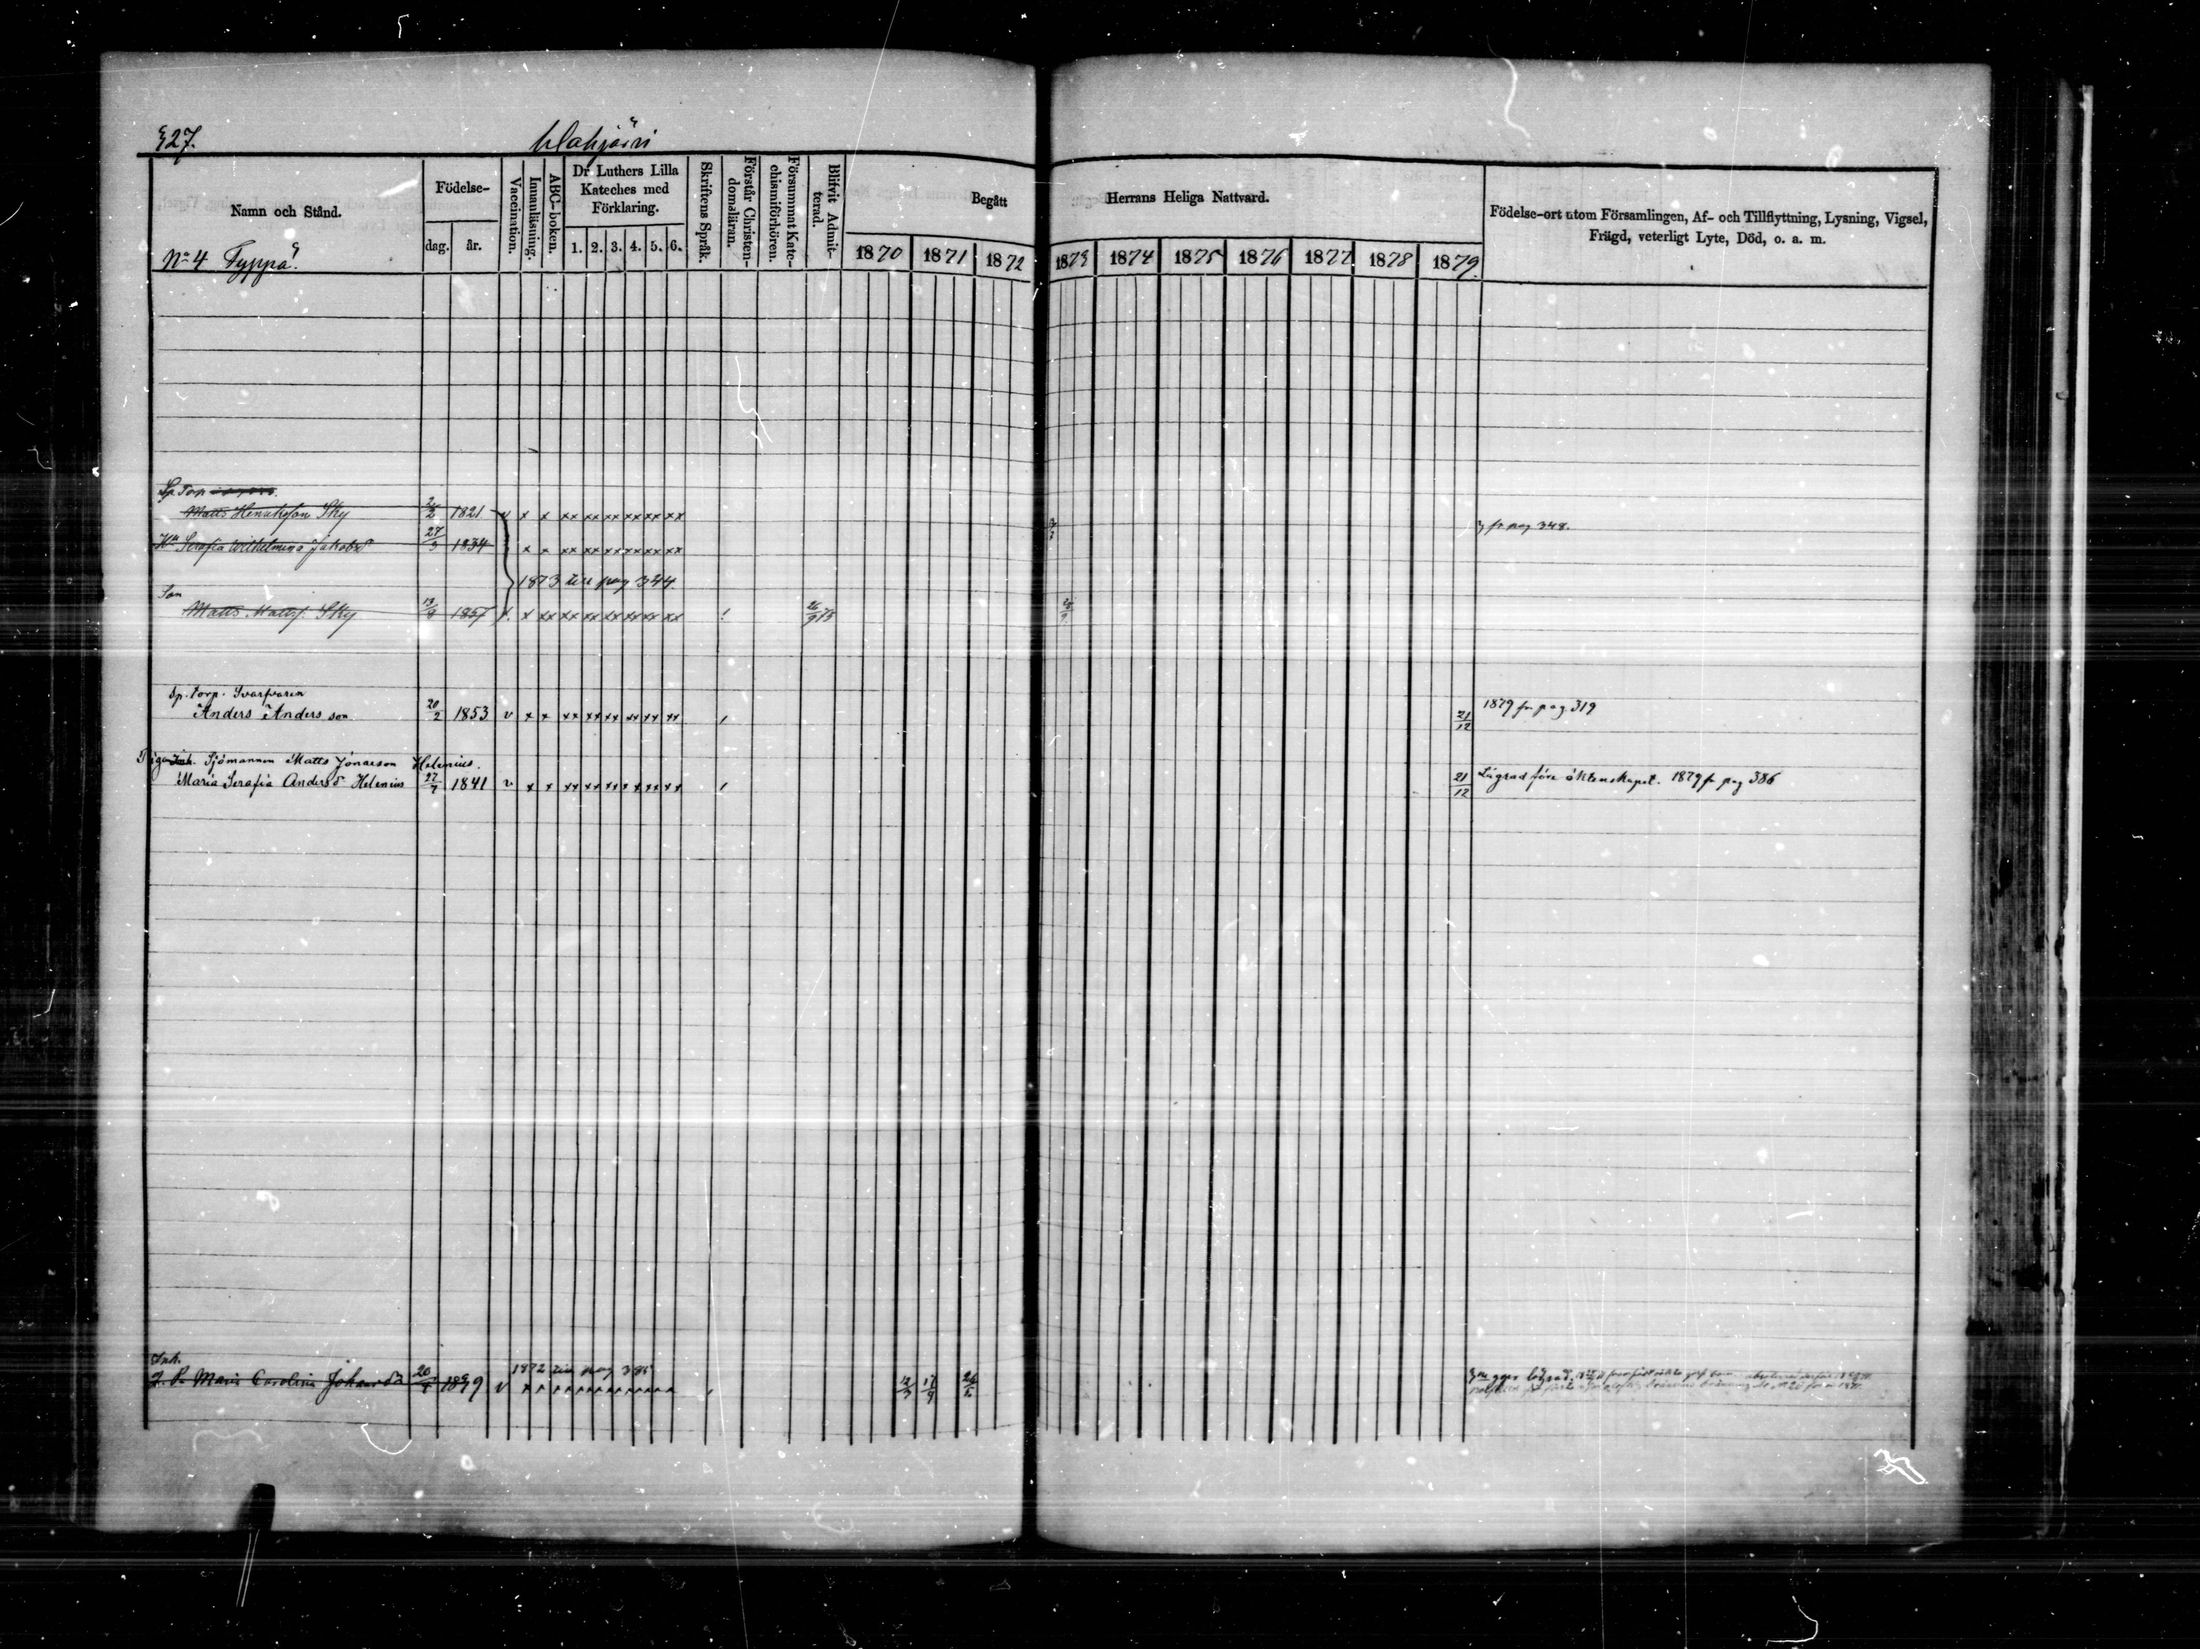 327.
Ylahjärvi
Namn och Stånd.
Födelse-
dag.
år.
Vaccination.
Innanläsning.
ABC-boken.
Dr Luthers Lilla Kateches med Förklaring.
1. 2. 3. 4. 5. 6.
Skriftens Språk.
Förstår Christendomsläran.
Försummat Katechismiförhören.
Blifvit Admitterad.
Begått
Herrans Heliga Nattvard.
1870 1871 1872 1873 1874 1875 1876 1877 1878 1879
Födelse-ort utom Församlingen, Af- och Tillflyttning, Lysning, Vigsel,
Frägd, veterligt Lyte, Död, o. a. m.
No 4 Typpä.
Sp. Torp
Matts Henriksson Sky 1821 v x x xx xx xx xx xx xx fr pag 348.
Hu Serafia Wilhelmina Jakobsd 27/3 1834 x x xx xx xx xx xx xx
1873 till pag 344.
Son
Matts Matts. Sky 13/8 1857 v. x xx xx xx xx xx xx xx
Sp. torp. Svarfvaren
Anders Andersson 20/2 1853 v x x xx xx xx xx xx xx 21/12 1879 fr. pag. 319
Piga Sjömannen Matts Jonasson Helenius.
Maria Serafia Andersd Helenius 27/7 1841 v x x xx xx xx xx xx xx 21/12 Lägrad före äktenskapet. 1879 fr pag 386
Inh. 1872 till pag 386
Maria Carolina Johansd 20/8 v